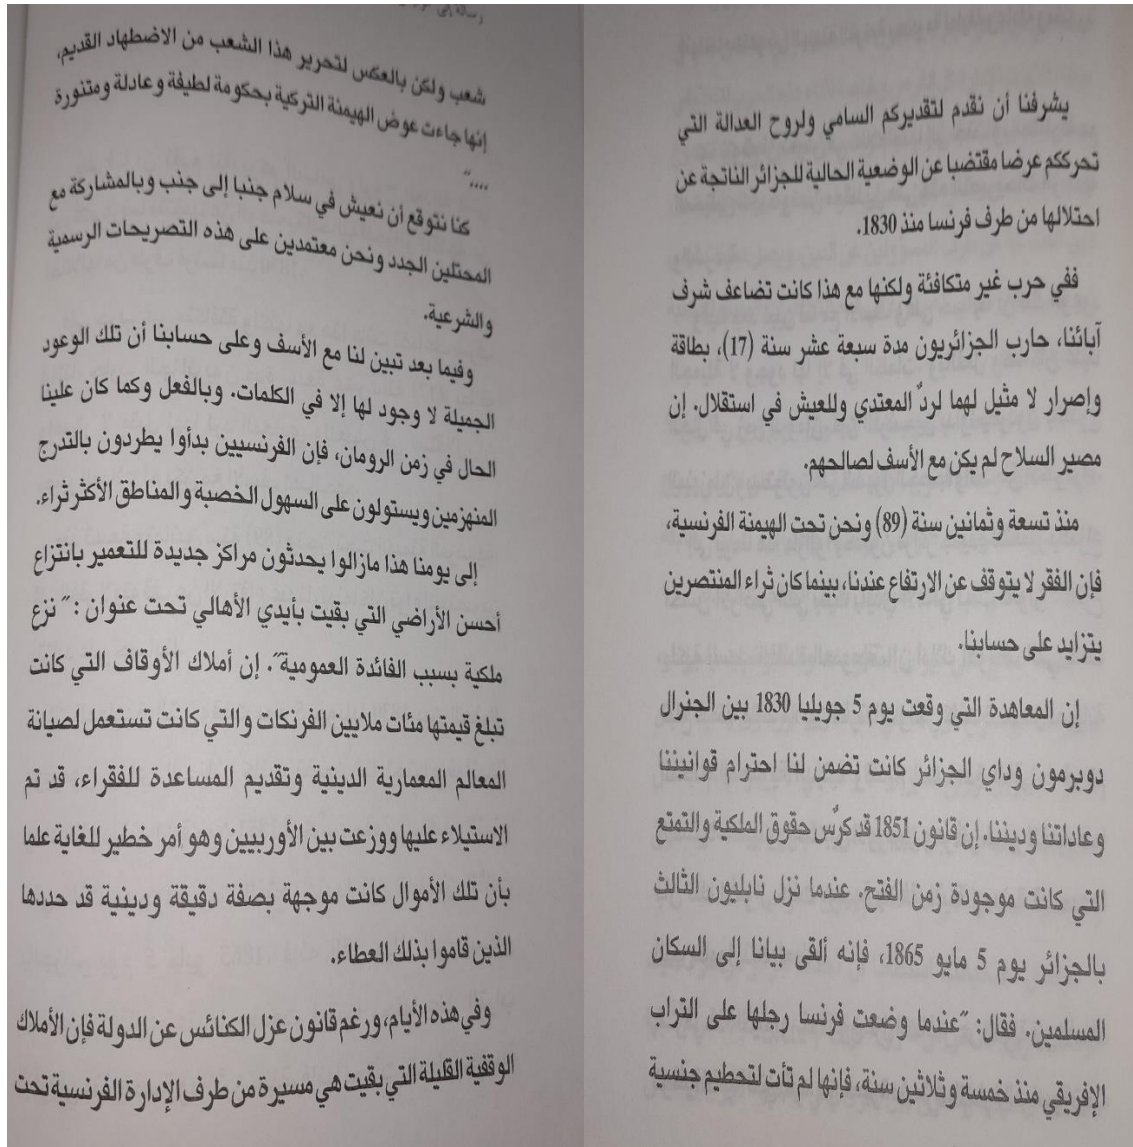 يشرفنا أن نقدم لتقديركم السامي ولروح العدالة التي
تحرككم عرضا مقتضبا عن الوضعية الحالية للجزائر الناتجة عن
احتلالها من طرف فرنسا منذ 1830.
ففي حرب غير متكافئة ولكنها مع هذا كانت تضاعف شرف
آبائنا، حارب الجزائريون مدة سبعة عشر سنة (17)، بطاقة
وإصرار لا مثيل لهما لردٌ المعتدي وللعيش في استقلال. إن
مصير السلاح لم يكن مع الأسف لصالحهم.
منذ تسعة وثمانين سنة (89) ونحن تحت الهيمنة الفرنسية،
فإن الفقر لا يتوقف عن الارتفاع عندنا، بينما كان ثراء المنتصرين
يتزايد على حسابنا.
إن المعاهدة التي وقعت يوم 5 جويليا 1830 بين الجنرال
دوبرمون وداي الجزائر كانت تضمن لنا احترام قوانيننا
وعاداتنا وديننا. إن قانون 1851 قد كرٌس حقوق الملكية والتمتع
التي كانت موجودة زمن الفتح. عندما نزل نابليون الثالث
بالجزائر يوم 5 مايو 1865، فإنه ألقى بيانا إلى السكان
المسلمين. فقال: "عندما وضعت فرنسا رجلها على التراب
الإفريقي منذ خمسة وثلاثين سنة، فإنها لم تأت لتحطيم جنسية
رسالة إلى
شعب ولكن بالعكس لتحرير هذا الشعب من الاضطهاد القديم،
إنها جاءت عوض الهيمنة التركية بحكومة لطيفة وعادلة ومتنورة
...."
كنا نتوقع أن نعيش في سلام جنبا إلى جنب وبالمشاركة مع
المحتلين الجدد ونحن معتمدين على هذه التصريحات الرسمية
والشرعية.
وفيما بعد تبين لنا مع الأسف وعلى حسابنا أن تلك الوعود
الجميلة لا وجود لها إلا في الكلمات. وبالفعل وكما كان علينا
الحال في زمن الرومان، فإن الفرنسيين بدأوا يطردون بالتدرج
المنهزمين ويستولون على السهول الخصبة والمناطق الأكثر ثراء.
إلى يومنا هذا مازالوا يحدثون مراكز جديدة للتعمير بانتزاع
أحسن الأراضي التي بقيت بأيدي الأهالي تحت عنوان : "نزع
ملكية بسبب الفائدة العمومية". إن أملاك الأوقاف التي كانت
تبلغ قيمتها مئات ملايين الفرنكات والتي كانت تستعمل لصيانة
المعالم المعمارية الدينية وتقديم المساعدة للفقراء، قد تم
الاستيلاء عليها ووزعت بين الأوربيين وهو أمر خطير للغاية علما
بأن تلك الأموال كانت موجهة بصفة دقيقة ودينية قد حددها
الذين قاموا بذلك العطاء.
وفي هذه الأيام، ورغم قانون عزل الكنائس عن الدولة فإن الأملاك
الوقفية القليلة التي بقيت هي مسيرة من طرف الإدارة الفرنسية تحت